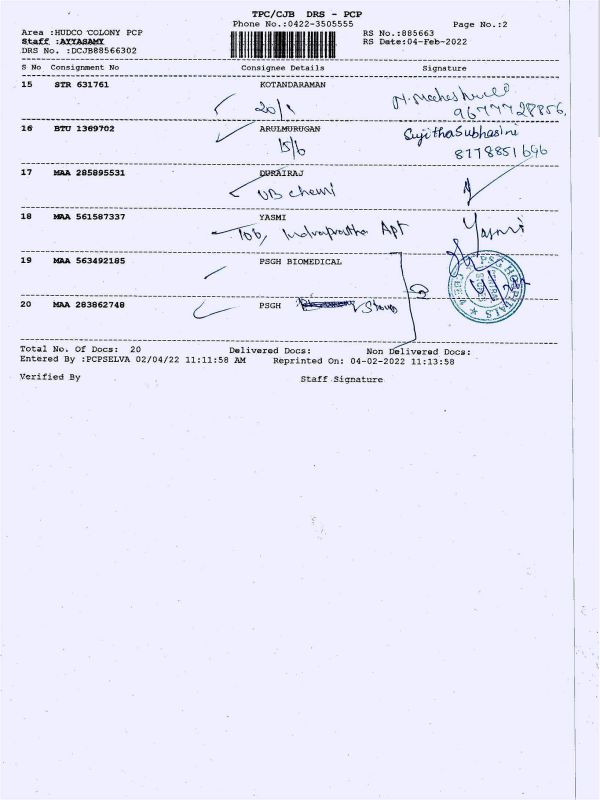 TPC/CJB DRS - PCP
Phone No.:0422-3505555 Page No.:2
Area :HUDCO COLONY PCP RS No.:885663
Staff :AYYASAMY RS Date:04-Feb-2022
DRS No. :DCJB88566302
S No Consignment No Consignee Details Signature
15 STR 631761 KOTANDARAMAN
20/1 9677728856,
16 BTU 1369702 ARULMURUGAN Sujitha Subhasini
15/6 8778851696
17 MAA 285895531 DURAIRAJ
UB chemi
18 MAA 561587337 YASMI Yasmi
Apt
19 MAA 563492185 PSGH BIOMEDICAL
PSG HOSPITALS
20 MAA 283862748 PSGH
Total No. Of Docs: 20 Delivered Docs: Non Delivered Docs:
Entered By :PCPSELVA 02/04/22 11:11:58 AM Reprinted On: 04-02-2022 11:13:58
Verified By Staff Signature